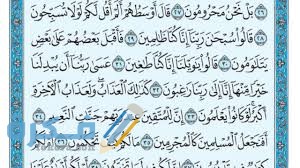 ﴿٢٦﴾ بَلْ نَحْنُ مَحْرُومُونَ ﴿٢٧﴾ قَالَ أَوْسَطُهُمْ أَلَمْ أَقُل لَّكُمْ لَوْلَا تُسَبِّحُونَ
﴿٢٨﴾ قَالُوا سُبْحَانَ رَبِّنَا إِنَّا كُنَّا ظَالِمِينَ ﴿٢٩﴾ فَأَقْبَلَ بَعْضُهُمْ عَلَىٰ بَعْضٍ
﴿٣٠﴾ قَالُوا يَا وَيْلَنَا إِنَّا كُنَّا طَاغِينَ ﴿٣١﴾ عَسَىٰ رَبُّنَا أَن يُبْدِلَنَا
خَيْرًا مِّنْهَا إِنَّا إِلَىٰ رَبِّنَا ﴿٣٢﴾ كَذَٰلِكَ الْعَذَابُ وَلَعَذَابُ الْآخِرَةِ
أَكْبَرُ لَوْ كَانُوا يَعْلَمُونَ ﴿٣٣﴾ إِنَّ لِلْمُتَّقِينَ عِندَ رَبِّهِمْ جَنَّاتِ النَّعِيمِ ﴿٣٤﴾
أَفَنَجْعَلُ الْمُسْلِمِينَ كَالْمُجْرِمِينَ ﴿٣٥﴾ مَا لَكُمْ كَيْفَ تَحْكُمُونَ